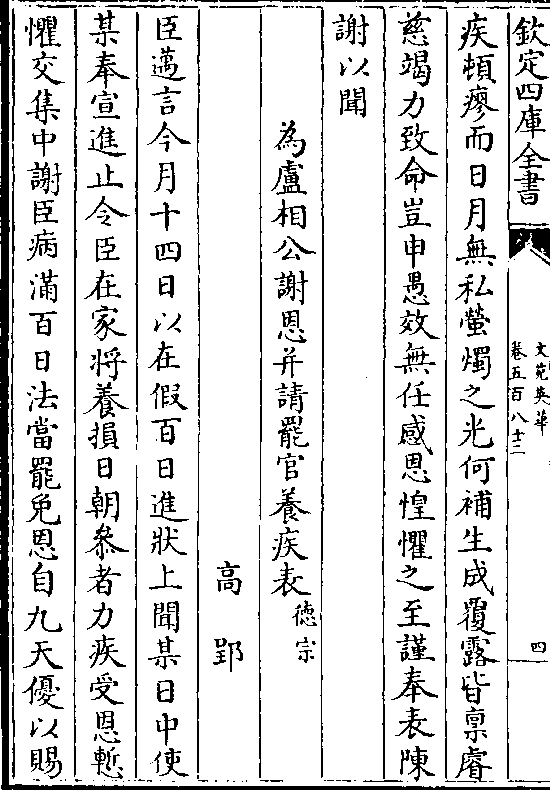 欽定四庫全書
文苑英華
卷五百八十二
四
疾頓瘳而日月無私螢燭之光何補生成覆露皆禀睿
慈竭力致命豈申愚效無任感恩惶懼之至謹奉表陳
謝以聞
為盧相公謝恩并請罷官養疾表德宗
高郢
臣邁言今月十四日以在假百日進狀上聞某日中使
某奉宣進止令臣在家將養損日朝叅者力疾受恩慙
懼交集中謝臣病滿百日法當罷免恩自九天優以賜